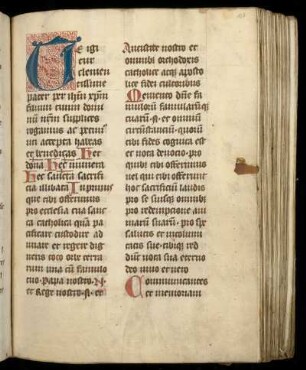 Te igi
tur
clemen
tissime
pater per ihm xpm
filium tuum domi
num nrm supplices
rogamus ac petim
uti accepta habeas
et benedicas Hec
dona Hec munera
Hec sancta sacrifi
cia illibata In primis
que tibi offerimus
pro ecclesia tua sanc
ta catholica quā pa
cificare custodire ad
unare et regere dig
neris toto orbe terra
rum una cū famulo
tuo papa nostro N
et Rege nostro N et
Antistite nostro et
omnibus orthodoxis
catholice atqz aposto
lice fidei cultoribus
Memento dne fa
mulorū famularūqz
tuarū N et omniū
circūstanciū quoiū
tibi fides cognita est
et nota devotio pro
quibz tibi offerimus
vel qui tibi offerunt
hoc sacrificiū laudis
pro se suisqz omnibz
pro redempcione ani
marū suarū pro spe
salutis et incolumi
tatis sue tibiqz red
dūt vota sua eterno
deo vivo et vero
Communicantes
et memoriam